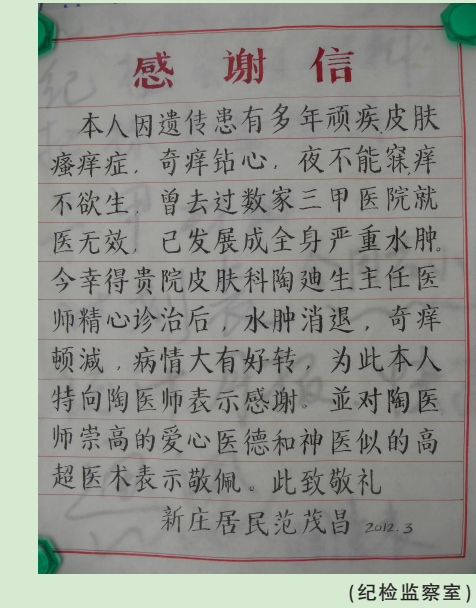 感谢信
本人因遗传患有多年顽疾皮肤
瘙痒症，奇痒钻心，夜不能寐痒
不欲生，曾去过数家三甲医院就
医无效，已发展成全身严重水肿。
今幸得贵院皮肤科陶迪生主任医
师精心诊治后，水肿消退，奇痒
顿減，病情大有好转，为此本人
特向陶医师表示感谢。並对陶医
师崇高的爱心医德和神医似的高
超医术表示敬佩。此致敬礼
新庄居民范茂昌 2012.3
(纪检监察室)